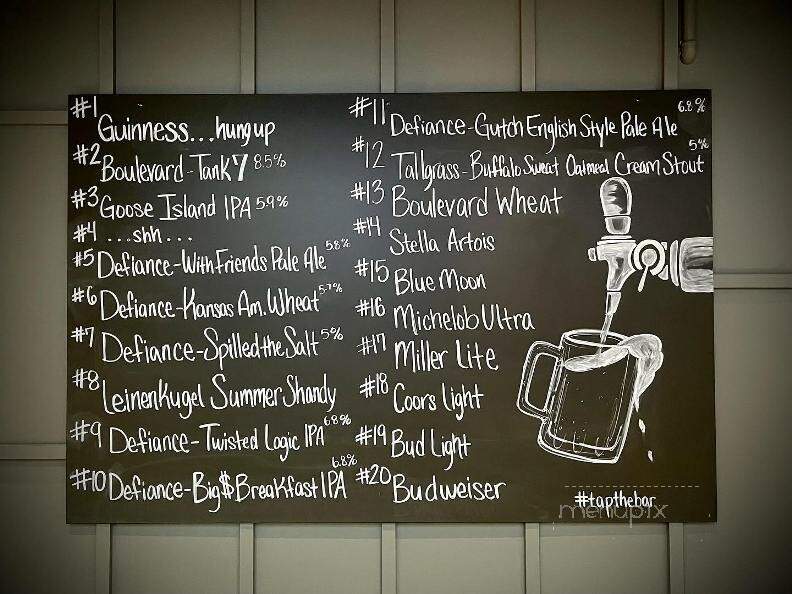 #1 Guinness...hung up
#2 Boulevard-Tank 7 8.5%
#3 Goose Island IPA 5.9%
#4 ...shh...
#5 Defiance-With Friends Pale Ale 5.8%
#6 Defiance-Kansas Am. Wheat 5.7%
#7 Defiance-Spilled the Salt 5%
#8 Leinenkugel Summer Shandy
#9 Defiance-Twisted Logic IPA 6.8%
#10 Defiance-Big$Breakfast IPA 6.8%
#11 Defiance-Gutch English Style Pale Ale 6.2%
#12 Tallgrass-Buffalo Sweat Oatmeal Cream Stout 5%
#13 Boulevard Wheat
#14 Stella Artois
#15 Blue Moon
#16 Michelob Ultra
#17 Miller Lite
#18 Coors Light
#19 Bud Light
#20 Budweiser
#tapthebar
menupix